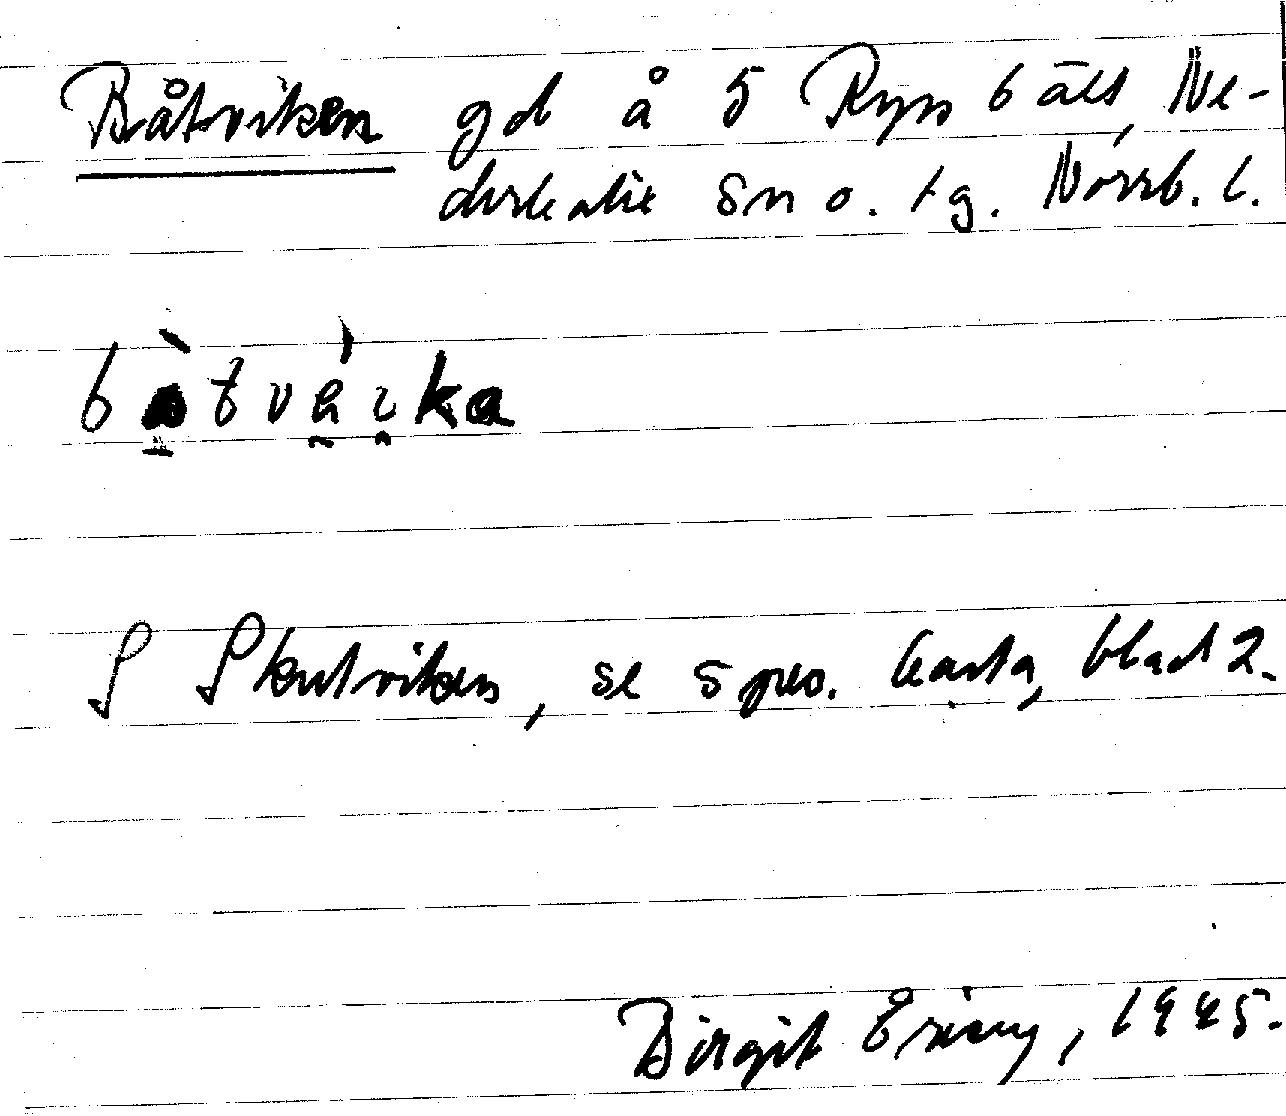 Båtviken gd å 5 Ryssbält, Ne-
derkalix sn o. tg. Norrb. l.
båtvèi̯ka
S Skutviken, se spec. karta, blad 2.
Birgit Ering, 1945.